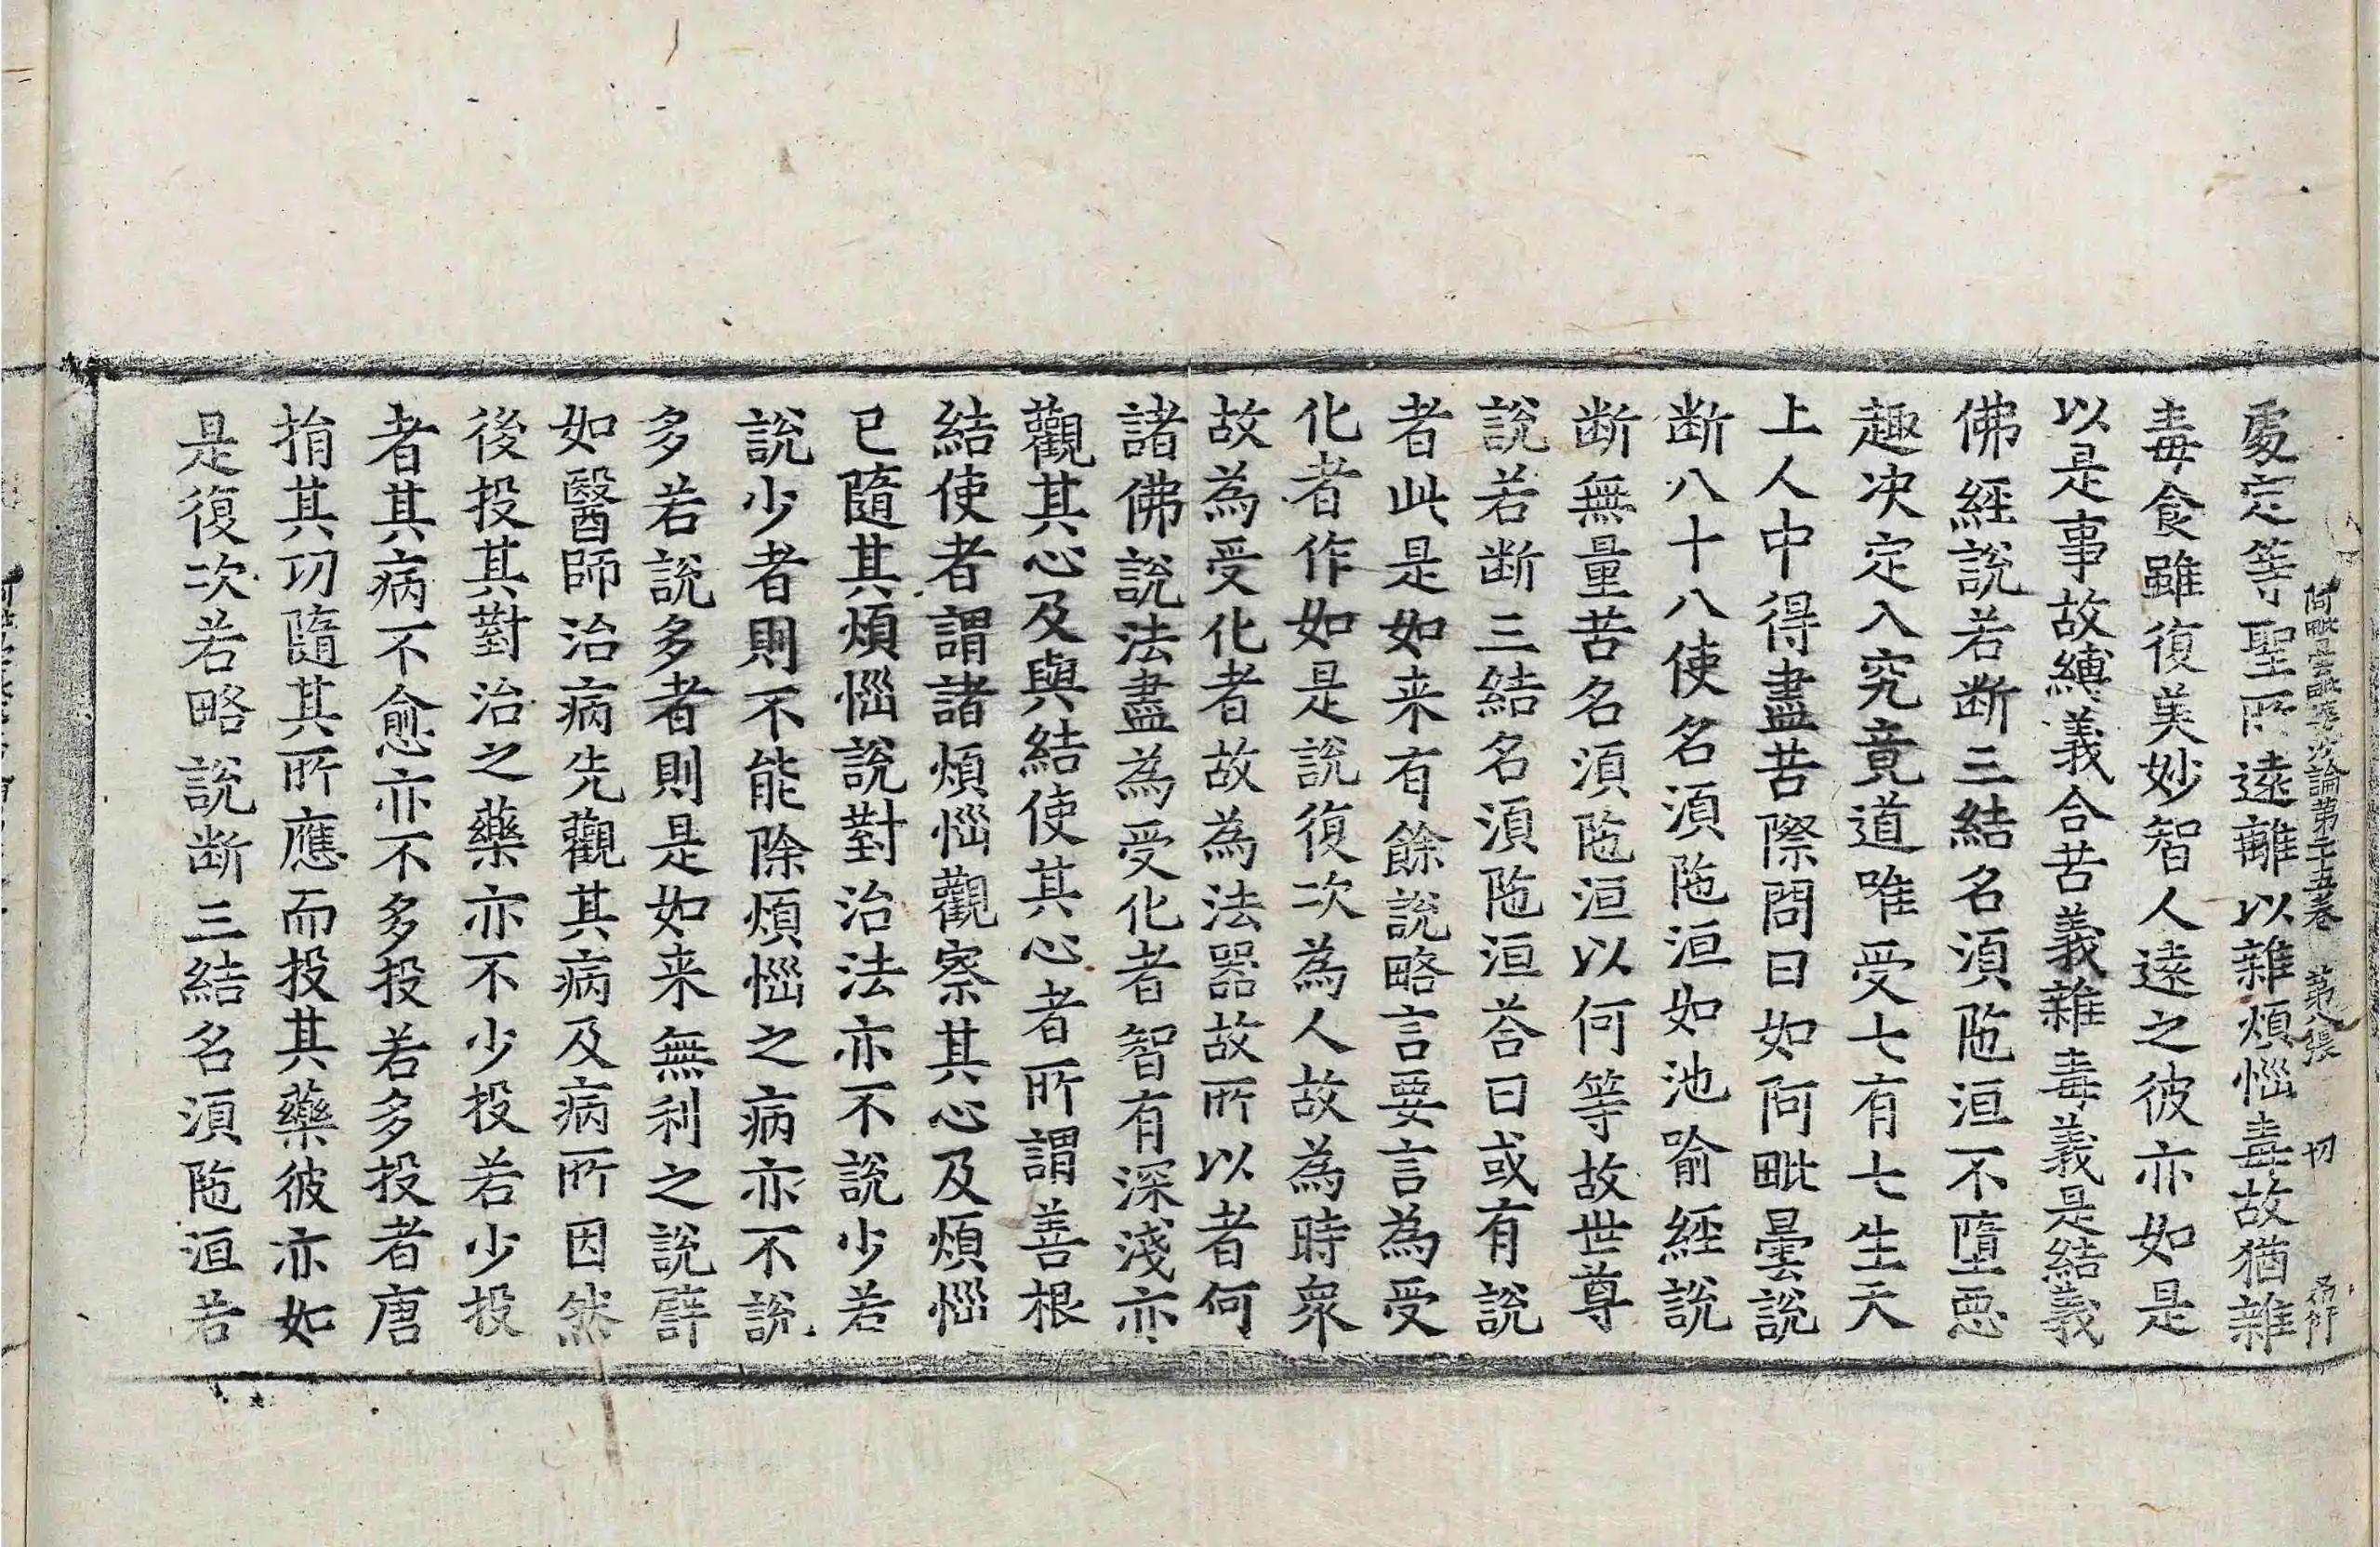 阿毗曇毗婆沙論第二十五卷　第八張　切
處定等聖所遠離以雜煩惱毒故猶雜
毒食雖復美妙智人遠之彼亦如是
以是事故縛義合苦義雜毒義是結義
佛經說若断三結名湏陁洹不墮惡
趣决定入究竟道唯受七有七生天
上人中得盡苦際問曰如阿毗曇說
断八十八使名湏陁洹如池喻經說
断無量苦名湏陁洹以何等故世尊
說若断三結名湏陁洹荅曰或有說
者此是如来有餘說略言要言為受
化者作如是說復次為人故為時衆
故為受化者故為法器故所以者何
諸佛說法盡為受化者智有深淺亦
觀其心及與結使其心者所謂善根
結使者謂諸煩惱觀察其心及煩惱
已隨其煩惱說對治法亦不說少若
說少者則不能除煩惱之病亦不說
多若說多者則是如来無利之說譬
如醫師治病先觀其病及病所因然
後投其對治之藥亦不少投若少投
者其病不愈亦不多投若多投者唐
捐其功隨其所應而投其藥彼亦如
是復次若略說断三結名湏陁洹若